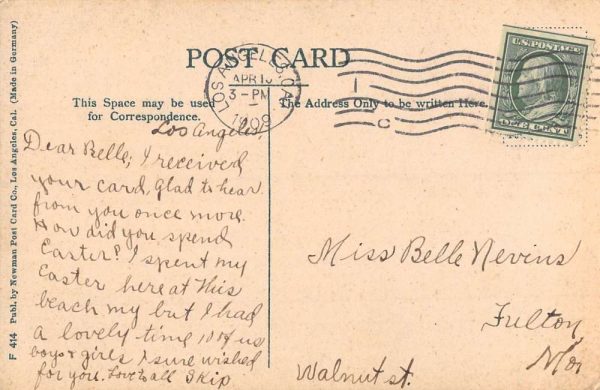 POST CARD
LOS ANGELES, CAL.
APR 13
3-PM
1909
1
C
U.S. POSTAGE
ONE CENT
This Space may be used
for Correspondence.
The Address Only to be written Here.
F 414 Publ. by Newman Post Card Co., Los Angeles, Cal. (Made in Germany)
Los Angeles
Dear Belle; I received
your card, glad to hear
from you once more.
How did you spend
Easter? I spent my
Easter here at this
beach my but I had
a lovely time 10 of us
boys & girls I sure wished
for you. Love to all Skip
Miss Belle Nevins
Fulton
Walnut st.